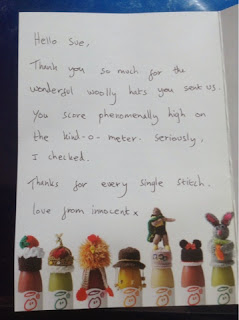 Hello Sue,
Thank you so much for the
wonderful woolly hats you sent us.
You score phenomenally high on
the kind-o-meter. Seriously,
I checked.
Thanks for every single stitch.
love from innocent x